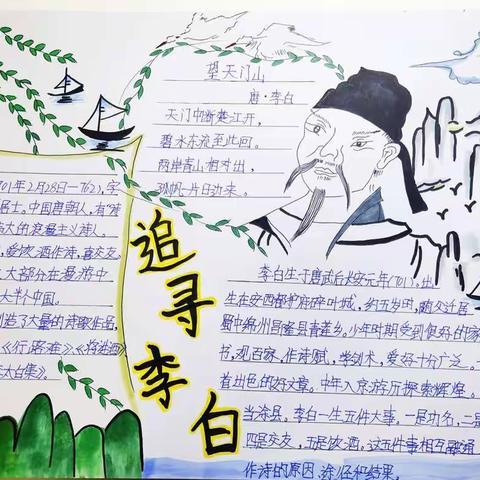 望天门山
唐·李白
天门中断楚江开,
碧水东流至此回。
两岸青山相对出,
孤帆一片日边来。
701年2月28日—762),字
居士。中国唐朝人,有"诗
大的浪漫主义诗人。
,爱饮酒作诗,喜交友。
大部分在漫游中
大半个中国。
创造了大量的诗歌作品,
《行路难》《将进酒》
太白集》。
追寻李白
李白生于唐武后长安元年(701),出
生在安西都护府碎叶城,约五岁时,随父迁居
蜀中绵州昌隆县青莲乡。少年时期受到很好的家
书,观百家,作诗赋,学剑术,爱好十分广泛。
着出色的好文章。中年入京游历探索辉煌。
当涂县。李白一生五件大事,一是功名,二是
四是交友,五是饮酒,这五件事相互融通
作诗的原因、途径和结果。